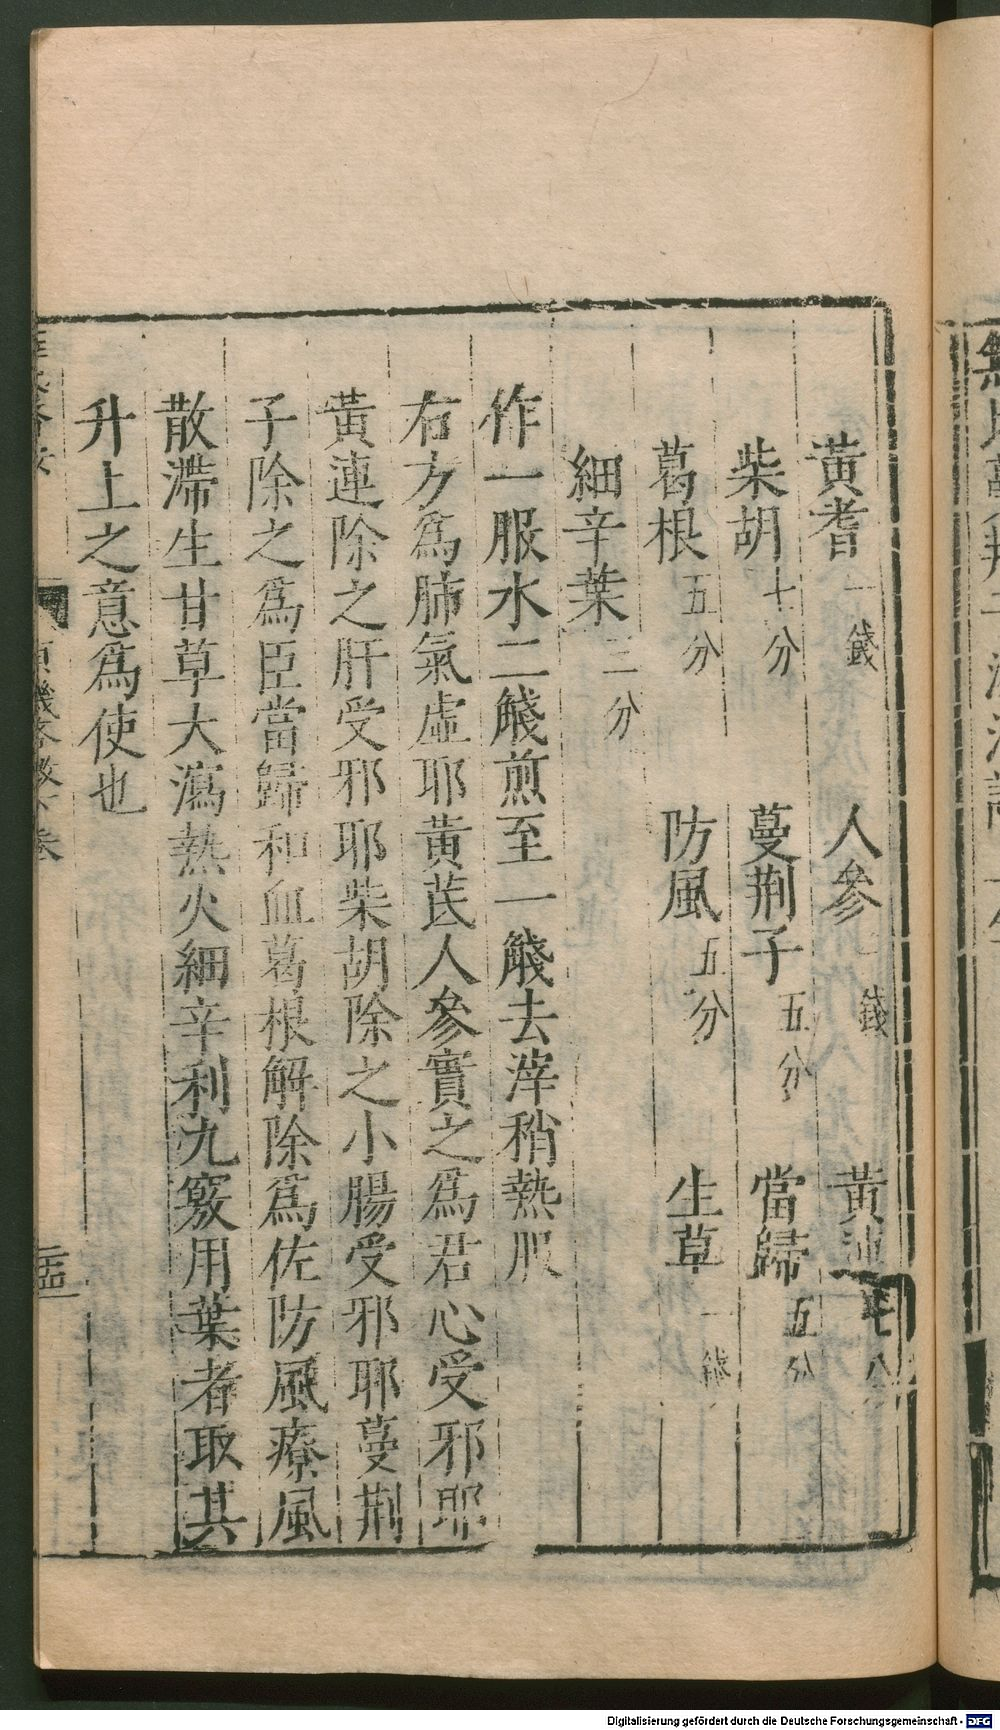 黃耆一錢　人參一錢　黃連七分
柴胡七分　蔓荆子五分　當歸五分
葛根五分　防風五分　生草一錢
細辛葉二分
作一服水二醆煎至一醆去滓稍熱服
右方爲肺氣虛耶黃茋人參實之爲君心受邪耶
黃連除之肝受邪耶柴胡除之小腸受邪耶蔓荆
子除之爲臣當歸和血葛根解除爲佐防風療風
散滯生甘草大瀉熱火細辛利九竅用葉者取其
升上之意爲使也
原機啓微下卷
Digitalisierung gefördert durch die Deutsche Forschungsgemeinschaft - DFG